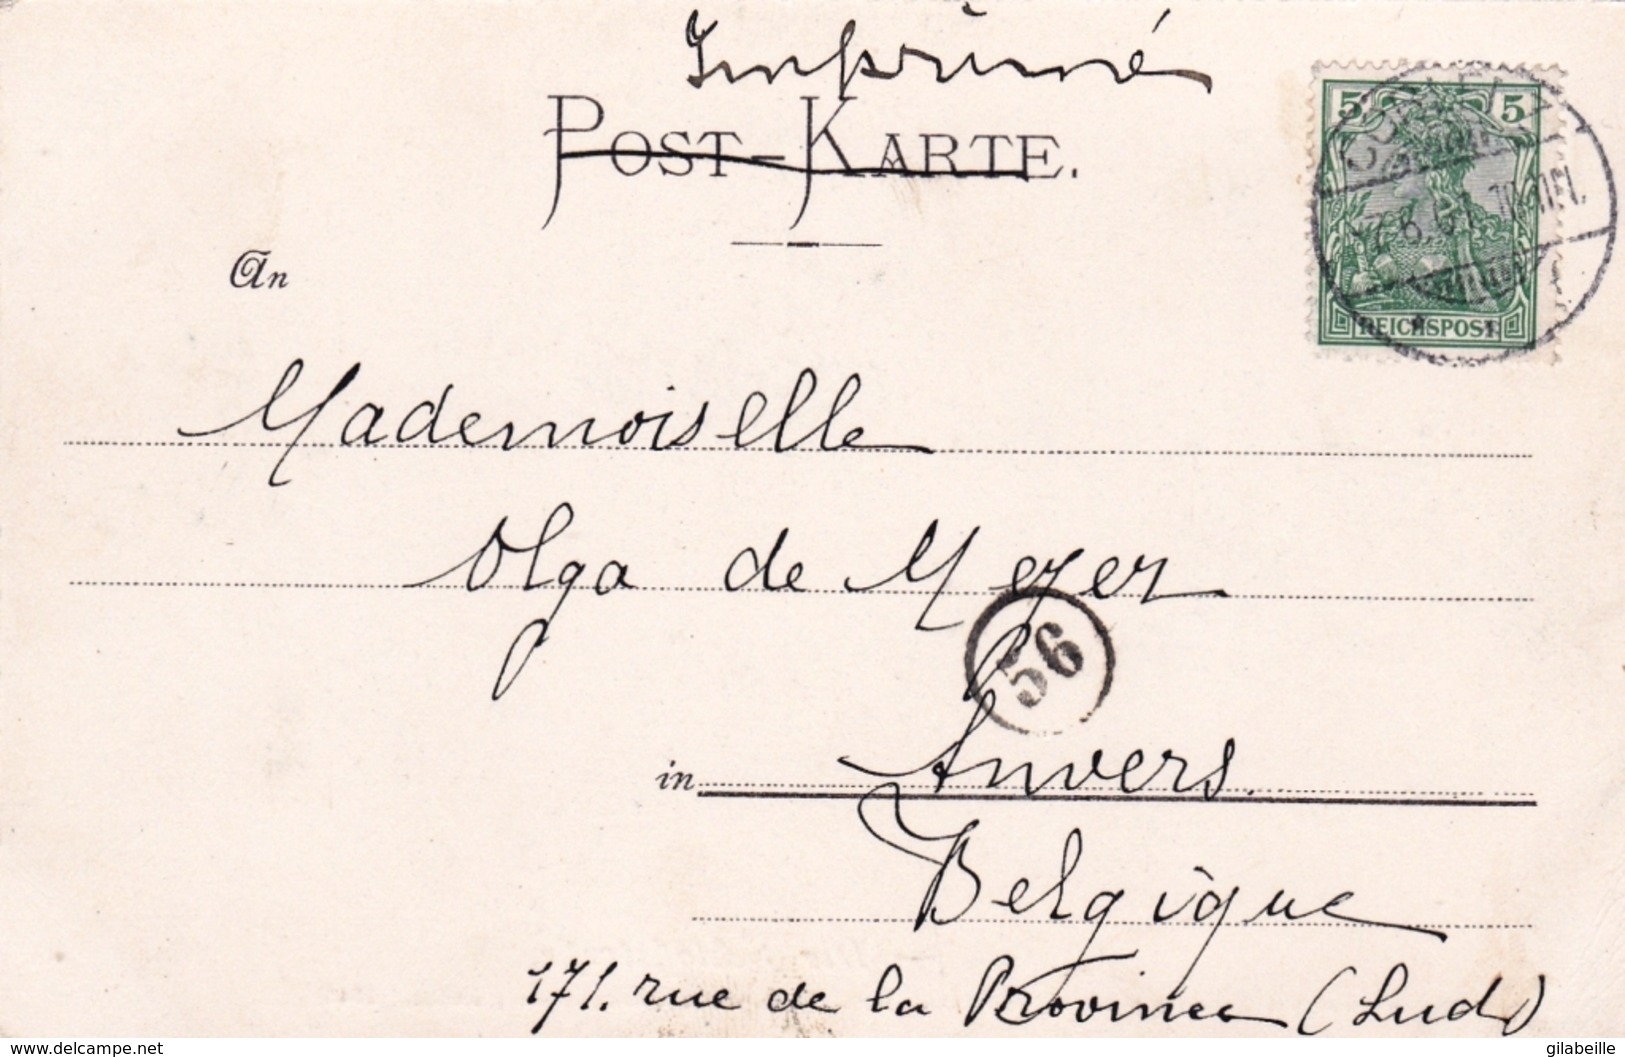 Imprimé
POST-KARTE.
5 5
REICHSPOST
An
Mademoiselle
Olga de Meyer
56
in Anvers.
Belgique
171. rue de la Province (Sud)
delcampe.net
gilabeille